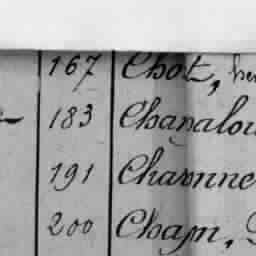 167 Chot,
183 Chanalou
191 Charonne
200 Cham,